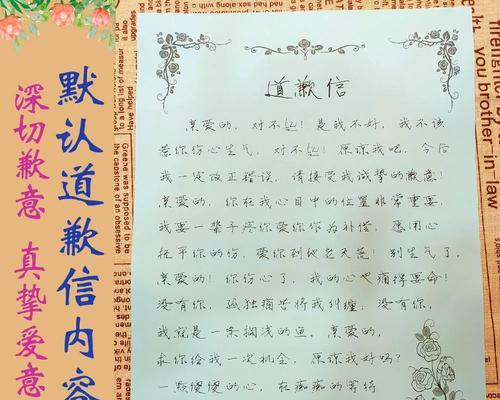 默认道歉信内容
深切歉意 真挚爱意
道歉信
亲爱的，对不起！是我不好，我不该
惹你伤心生气，对不起！原谅我吧，今后
我一定改正错误，请接受我诚挚的歉意！
亲爱的，你在我心目中的位置非常重要，
我要一辈子疼你爱你你为补偿，愿用心
抚平你的伤，爱你到地老天荒！别生气了，
亲爱的！你伤心了，我的心也痛得要命！
没有你，孤独痛苦将我纠缠，没有你，
我就是一条搁浅的鱼。亲爱的，
求你给我一次机会，原谅我好吗？
一颗愧愧的心，在痴痴的等待
you brother in-law
Greene was supposed to be
the capstone of an obsessive